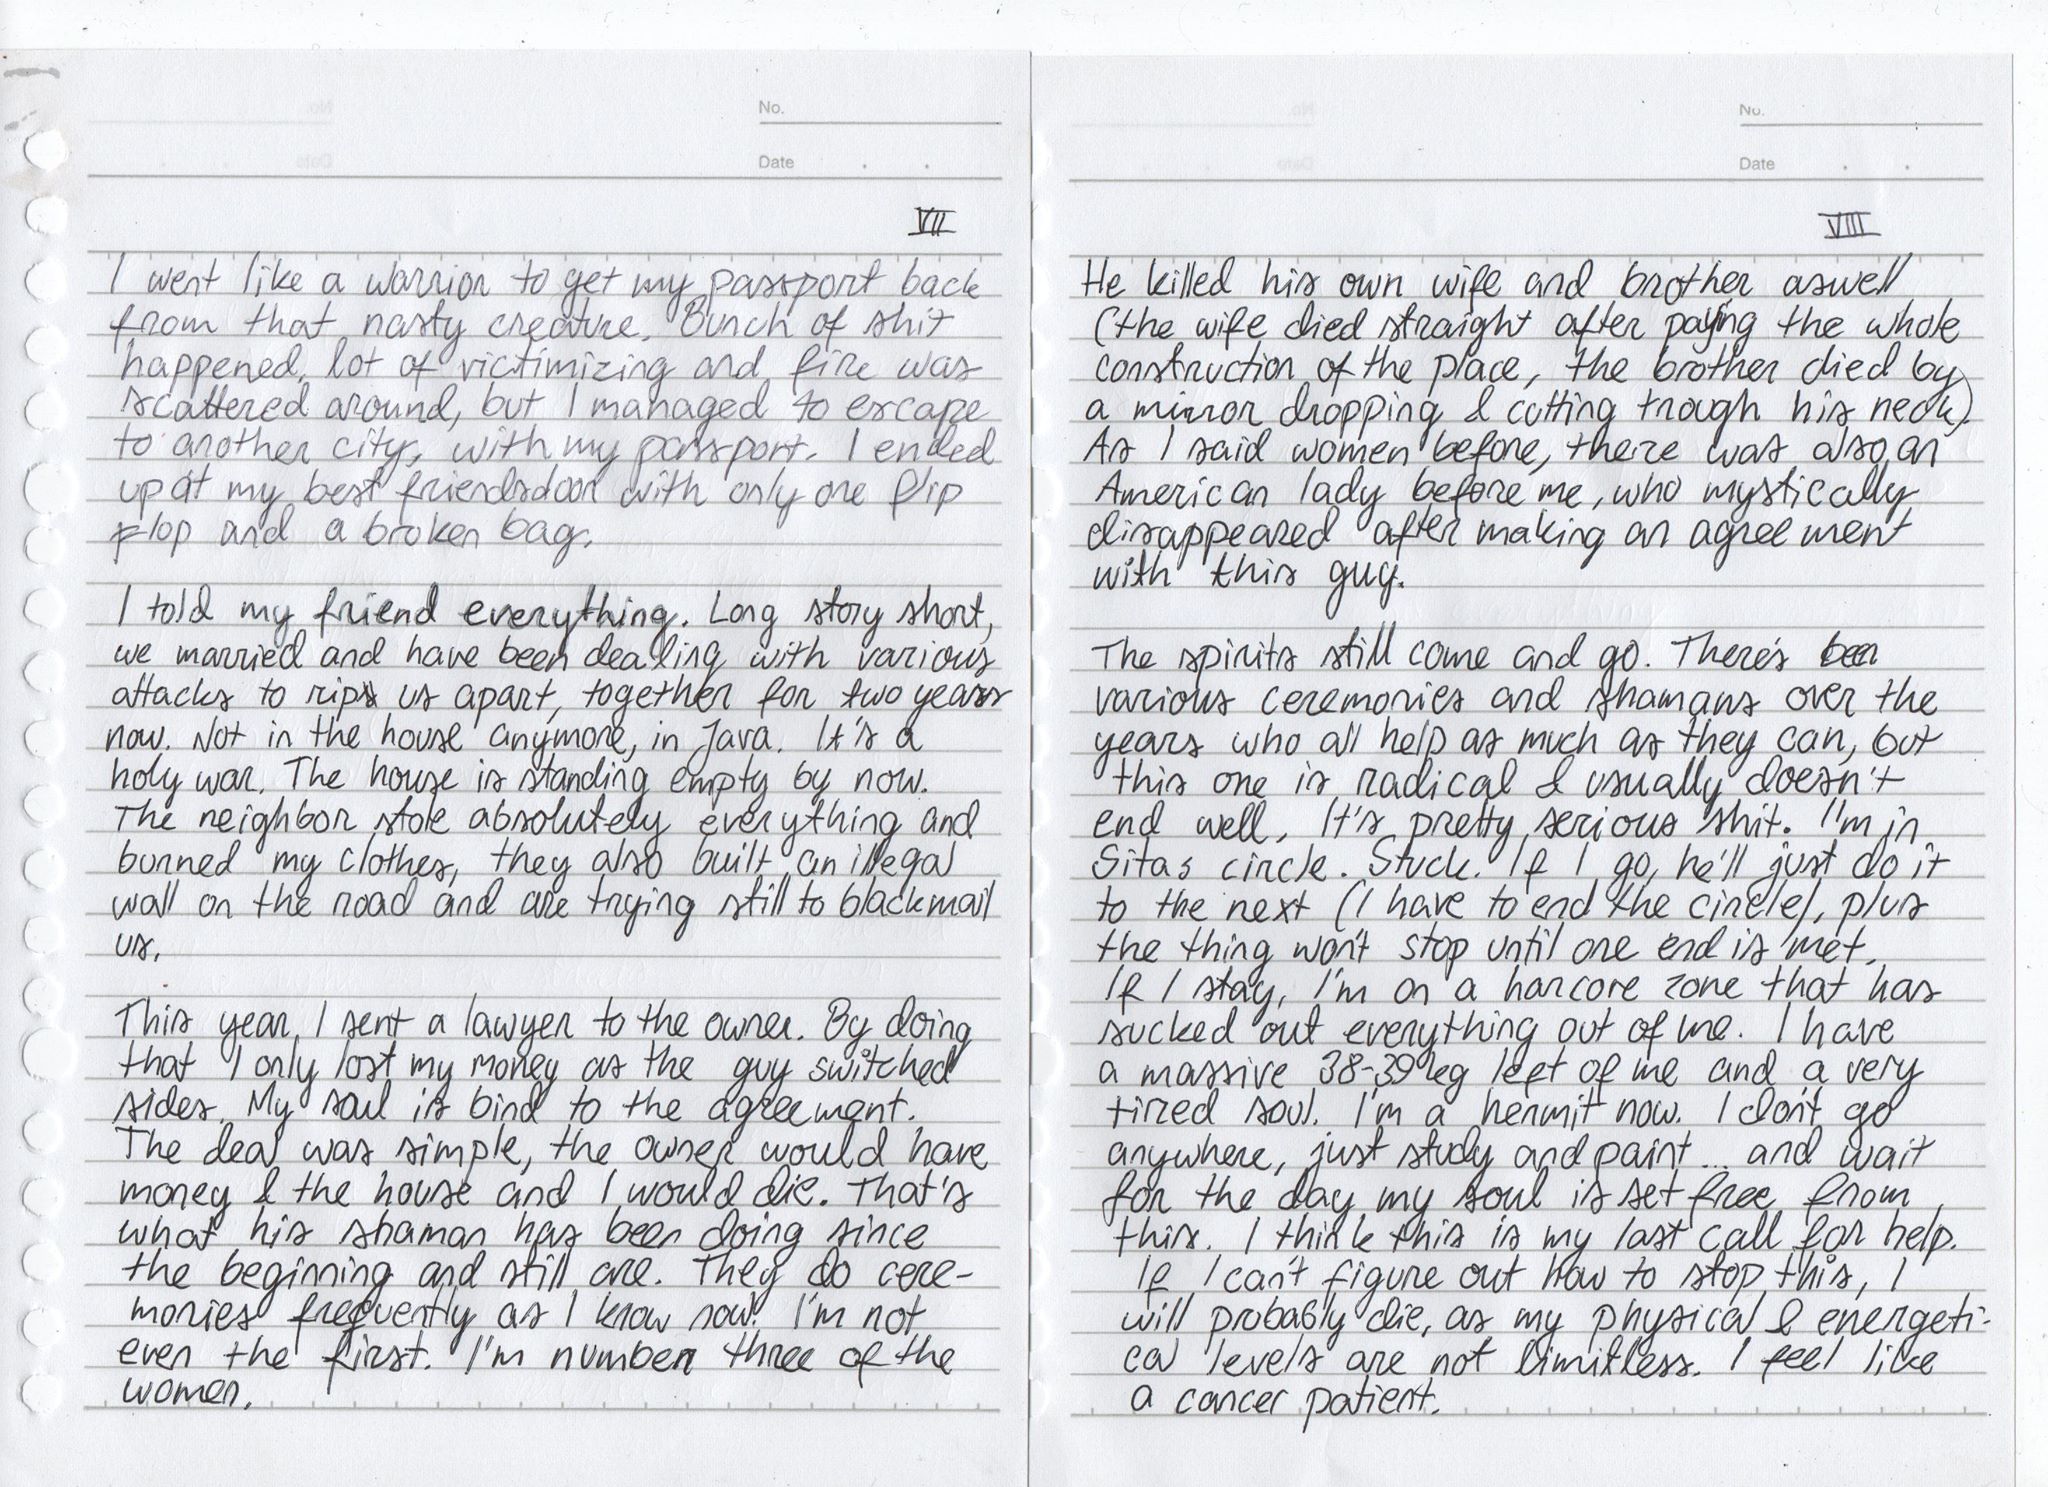 No.
Date
VII
I went like a warrior to get my passport back
from that nasty creature. Bunch of shit
happened, lot of victimizing and fire was
scattered around, but I managed to escape
to another city, with my passport. I ended
up at my best friendsdoor with only one flip
flop and a broken bag.
I told my friend everything. Long story short,
we married and have been dealing with various
attacks to rip us apart, together for two years
now. Not in the house anymore, in Java. It's a
holy war. The house is standing empty by now.
The neighbor stole absolutely everything and
burned my clothes, they also built an illegal
wall on the road and are trying still to blackmail
us.
This year, I sent a lawyer to the owner. By doing
that I only lost my money as the guy switched
sides. My soul is bind to the agreement.
The deal was simple, the owner would have
money & the house and I would die. That's
what his shaman has been doing since
the beginning and still are. They do cere-
monies frequently as I know now! I'm not
even the first. I'm number three of the
women.
No.
Date
VIII
He killed his own wife and brother aswell
(the wife died straight after paying the whole
construction of the place, the brother died by
a mirror dropping & cutting trough his neck).
As I said women before, there was also an
American lady before me, who mystically
disappeared after making an agreement
with this guy.
The spirits still come and go. There's been
various ceremonies and shamans over the
years who all help as much as they can, but
this one is radical & usually doesn't
end well. It's pretty serious shit. I'm in
Sitas circle. Stuck. If I go, he'll just do it
to the next (I have to end the circle), plus
the thing won't stop until one end is met.
If I stay, I'm on a harcore zone that has
sucked out everything out of me. I have
a massive 38-39kg left of me and a very
tired soul. I'm a hermit now. I don't go
anywhere, just study and paint... and wait
for the day my soul is set free from
this. I think this is my last call for help.
If I can't figure out how to stop this, I
will probably die, as my physical & energeti-
cal levels are not limitless. I feel like
a cancer patient.